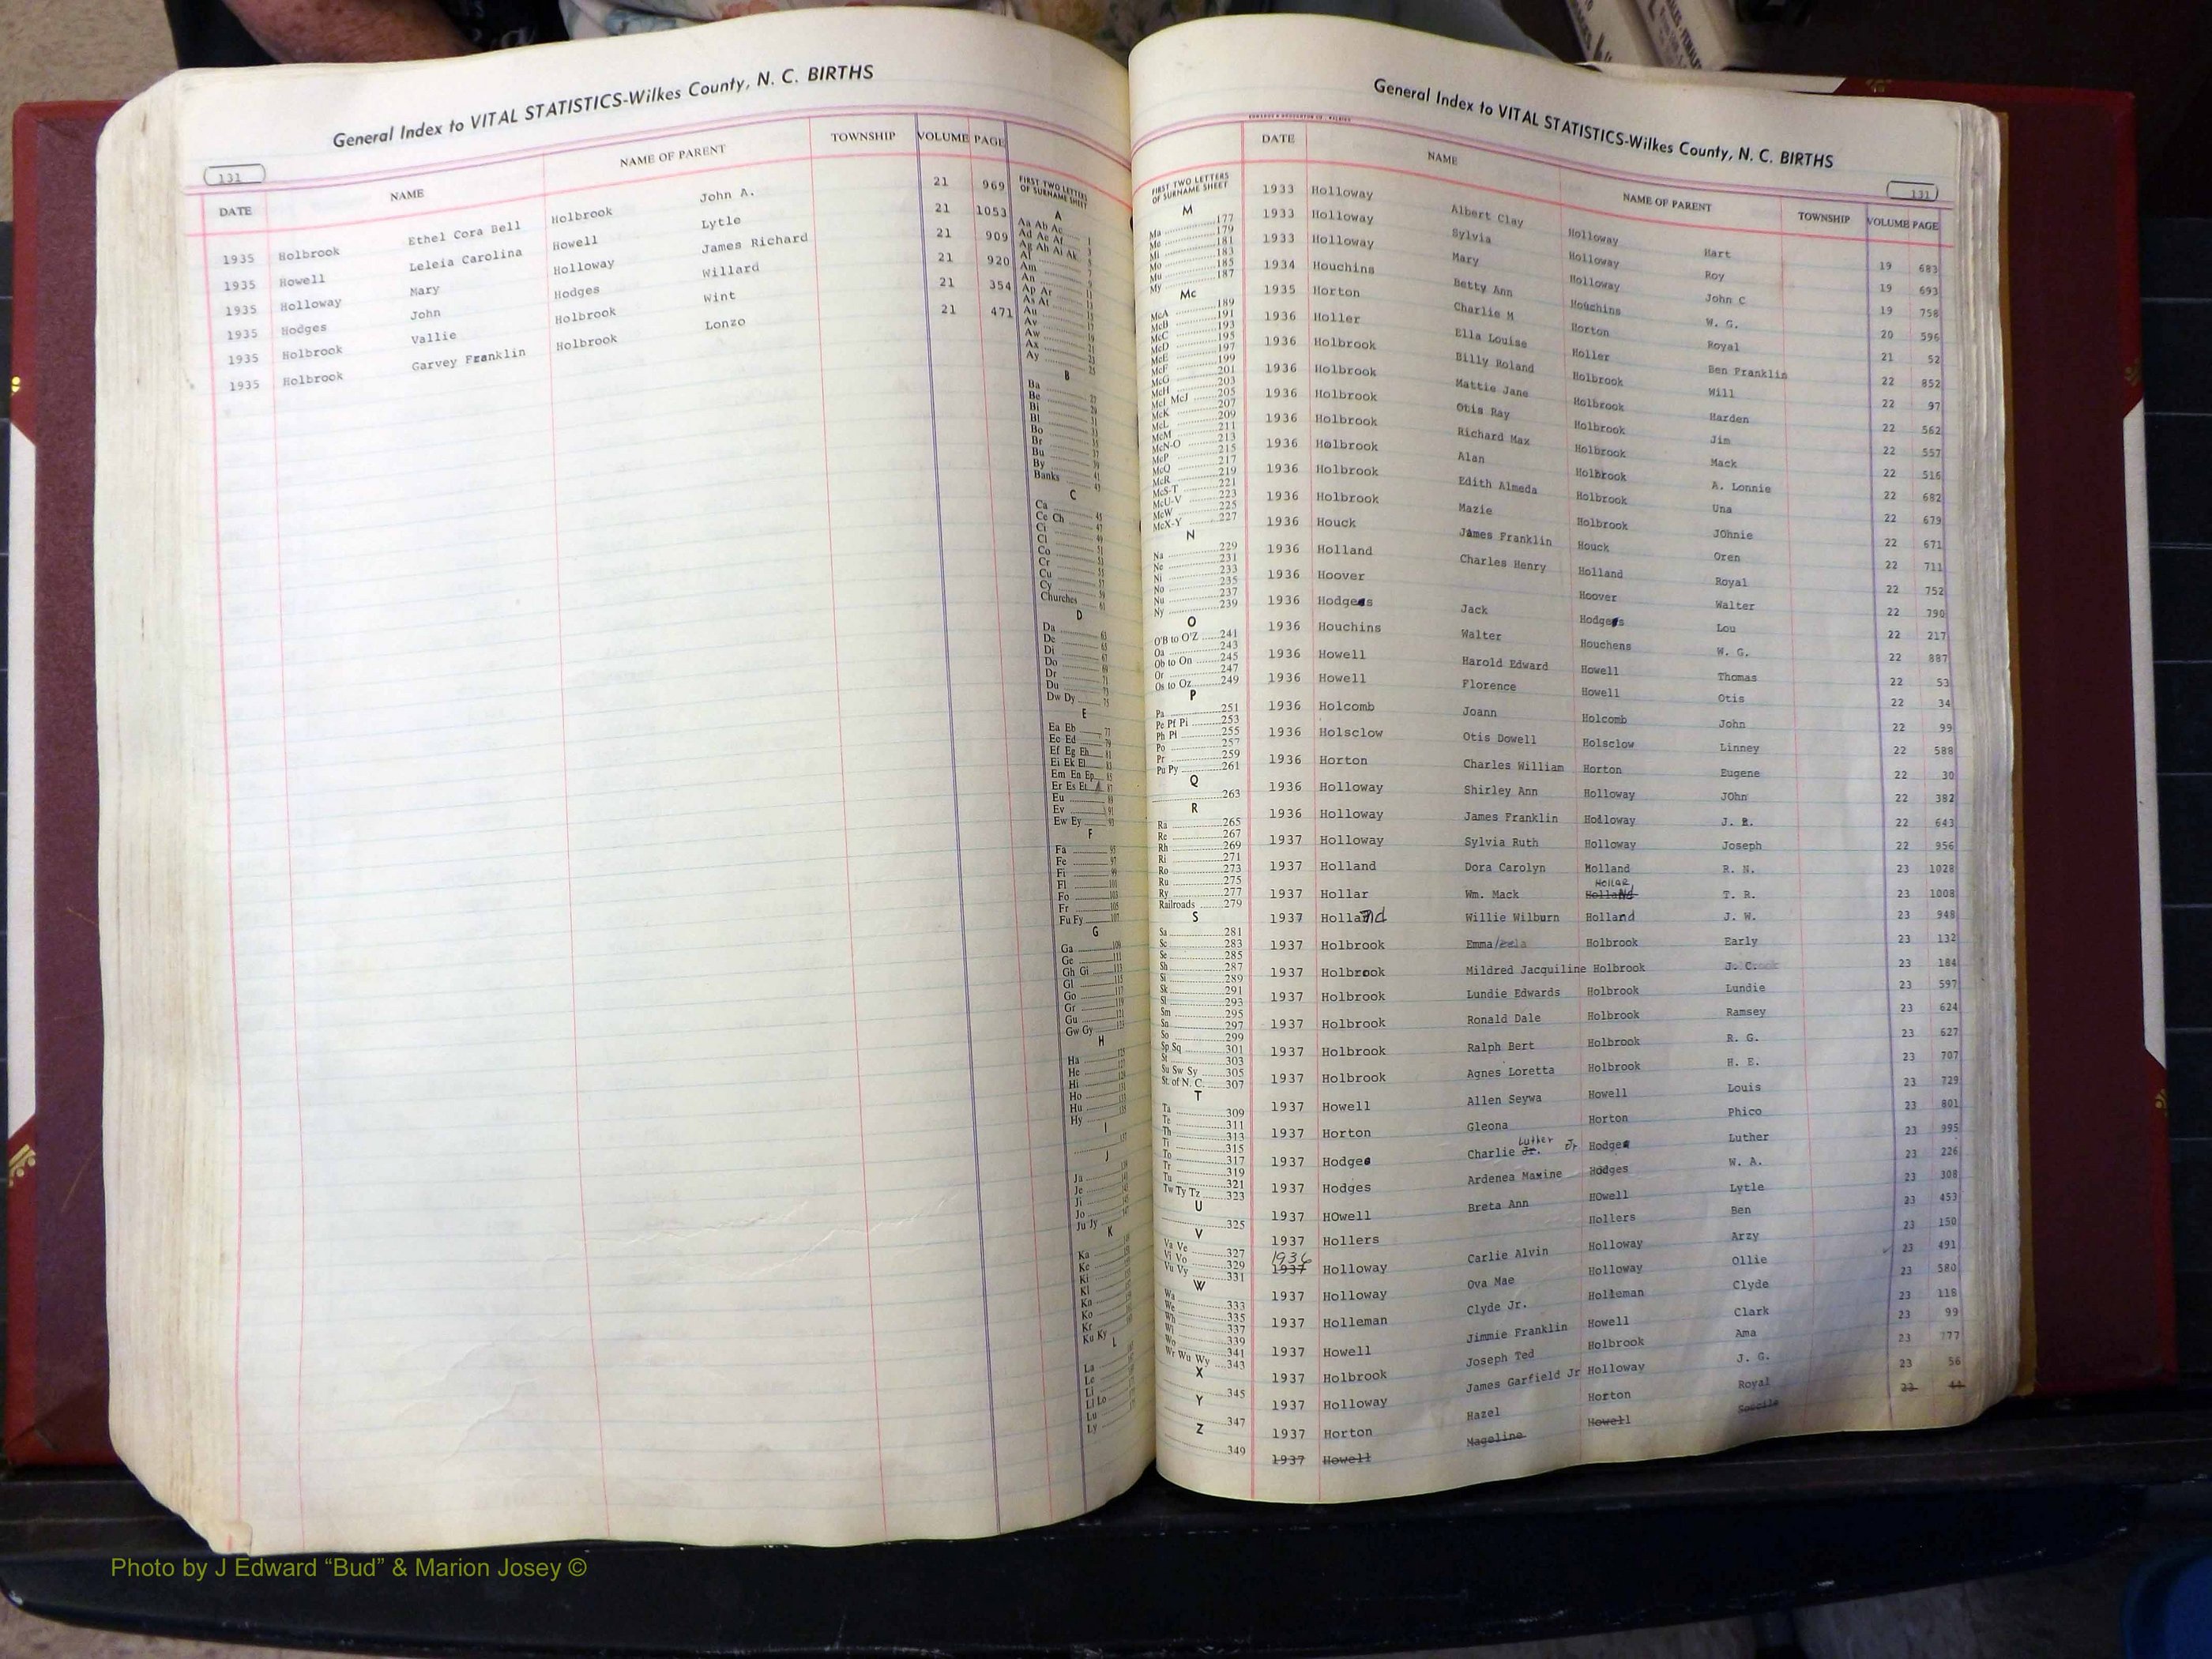 General Index to VITAL STATISTICS-Wilkes County, N. C. BIRTHS
131
DATE NAME NAME OF PARENT TOWNSHIP VOLUME PAGE
1935 Holbrook Ethel Cora Bell Holbrook John A. 21 969
1935 Howell Leleia Carolina Howell Lytle 21 1053
1935 Holloway Mary Holloway James Richard 21 909
1935 Hodges John Hodges Willard 21 920
1935 Holbrook Vallie Holbrook Wint 21 354
1935 Holbrook Garvey Franklin Holbrook Lonzo 21 471
FIRST TWO LETTERS
OF SURNAME SHEET
A
Aa Ab Ac
Ad Ae Af
Ag Ah Ai Ak
Al
Am
An
Ap Ar
As At
Au
Av
Aw
Ax
Ay
B
Ba
Be
Bi
Bl
Bo
Br
Bu
By
Banks
C
Ca
Ce Ch
Ci
Cl
Co
Cr
Cu
Cy
Churches
D
Da
De
Di
Do
Dr
Du
Dw Dy
E
Ea Eb
Ec Ed
Ef Eg Eh
Ei Ek El
Em En Ep
Er Es Et
Eu
Ev
Ew Ey
F
Fa
Fe
Fi
Fl
Fo
Fr
Fu Fy
G
Ga
Ge
Gh Gi
Gl
Go
Gr
Gu
Gw Gy
H
Ha
He
Hi
Ho
Hu
Hy
I
J
Ja
Je
Ji
Jo
Ju Jy
K
Ka
Ke
Ki
Kl
Kn
Ko
Kr
Ku Ky
L
La
Le
Li
Ll Lo
Lu
Ly
General Index to VITAL STATISTICS-Wilkes County, N. C. BIRTHS
131
FIRST TWO LETTERS
OF SURNAME SHEET
M
Ma 177
Me 179
Mi 181
Mo 183
Mu 185
My 187
Mc
McA 189
McB 191
McC 193
McD 195
McE 197
McF 199
McG 201
McH 203
McI McJ 205
McK 207
McL 209
McM 211
McN-O 213
McP 215
McQ 217
McR 219
McS-T 221
McU-V 223
McW 225
McX-Y 227
N
Na 229
Ne 231
Ni 233
No 235
Nu 237
Ny 239
O
O'B to O'Z 241
Oa 243
Ob to On 245
Or 247
Os to Oz 249
P
Pa 251
Pe Pf Pi 253
Ph Pl 255
Po 257
Pr 259
Pu Py 261
Q
263
R
Ra 265
Re 267
Rh 269
Ri 271
Ro 273
Ru 275
Ry 277
Railroads 279
S
Sa 281
Sc 283
Se 285
Sh 287
Si 289
Sk 291
Sl 293
Sm 295
Sn 297
So 299
Sp Sq 301
St 303
Su Sw Sy 305
St. of N. C. 307
T
Ta 309
Te 311
Th 313
Ti 315
To 317
Tr 319
Tu 321
Tw Ty Tz 323
U
325
V
Va Ve 327
Vi Vo 329
Vu Vy 331
W
Wa 333
We 335
Wh 337
Wi 339
Wo 341
Wr Wu Wy 343
X
345
Y
347
Z
349
DATE NAME NAME OF PARENT TOWNSHIP VOLUME PAGE
1933 Holloway Albert Clay Holloway Hart 19 683
1933 Holloway Sylvia Holloway Roy 19 693
1933 Holloway Mary Holloway John C 19 758
1934 Houchins Betty Ann Houchins W. G. 20 596
1935 Horton Charlie M Horton Royal 21 52
1936 Holler Ella Louise Holler Ben Franklin 22 852
1936 Holbrook Billy Roland Holbrook Will 22 97
1936 Holbrook Mattie Jane Holbrook Harden 22 562
1936 Holbrook Otis Ray Holbrook Jim 22 557
1936 Holbrook Richard Max Holbrook Mack 22 516
1936 Holbrook Alan Holbrook A. Lonnie 22 682
1936 Holbrook Edith Almeda Holbrook Una 22 679
1936 Holbrook Mazie Holbrook JOhnie 22 671
1936 Houck James Franklin Houck Oren 22 711
1936 Holland Charles Henry Holland Royal 22 752
1936 Hoover Hoover Walter 22 790
1936 Hodges Jack Hodges Lou 22 217
1936 Houchins Walter Houchens W. G. 22 887
1936 Howell Harold Edward Howell Thomas 22 53
1936 Howell Florence Howell Otis 22 34
1936 Holcomb Joann Holcomb John 22 99
1936 Holsclow Otis Dowell Holsclow Linney 22 588
1936 Horton Charles William Horton Eugene 22 30
1936 Holloway Shirley Ann Holloway JOhn 22 382
1936 Holloway James Franklin Holloway J. R. 22 643
1937 Holloway Sylvia Ruth Holloway Joseph 22 956
1937 Holland Dora Carolyn Molland R. N. 23 1028
1937 Hollar Wm. Mack Holland Hollar T. R. 23 1008
1937 Holland Willie Wilburn Holland J. W. 23 948
1937 Holbrook Emma Holbrook Early 23 132
1937 Holbrook Mildred Jacquiline Holbrook J. C. 23 184
1937 Holbrook Lundie Edwards Holbrook Lundie 23 597
1937 Holbrook Ronald Dale Holbrook Ramsey 23 624
1937 Holbrook Ralph Bert Holbrook R. G. 23 627
1937 Holbrook Agnes Loretta Holbrook H. E. 23 707
1937 Howell Allen Seywa Howell Louis 23 729
1937 Horton Gleona Horton Phico 23 801
1937 Hodge Charlie Jr. Luther Jr Hodge Luther 23 995
1937 Hodges Ardenea Maxine Hodges W. A. 23 226
1937 HOwell Breta Ann HOwell Lytle 23 308
1937 Hollers Hollers Ben 23 453
1936 1937 Holloway Carlie Alvin Holloway Arzy 23 150
1937 Holloway Ova Mae Holloway Ollie 23 491
1937 Holleman Clyde Jr. Holleman Clyde 23 580
1937 Howell Jimmie Franklin Howell Clark 23 118
1937 Holbrook Joseph Ted Holbrook Ama 23 99
1937 Holloway James Garfield Jr Holloway J. G. 23 777
1937 Horton Hazel Horton Royal 23 56
1937 Howell Mageline Howell 23 44
Photo by J Edward “Bud” & Marion Josey ©